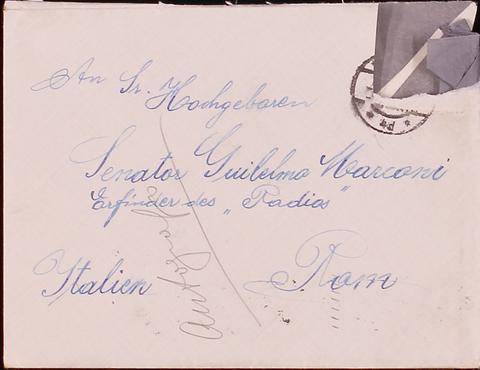 An Sr. Hochgeboren
Senator Guilelmo Marconi
Erfinder des „Radios"
Italien Rom